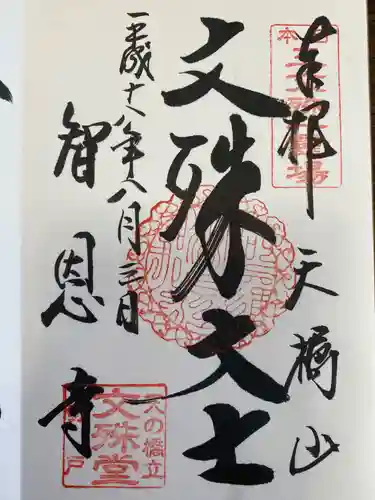 奉拝
天橋山
文殊大士
平成十八年八月三日
智恩寺
天の橋立
文殊堂